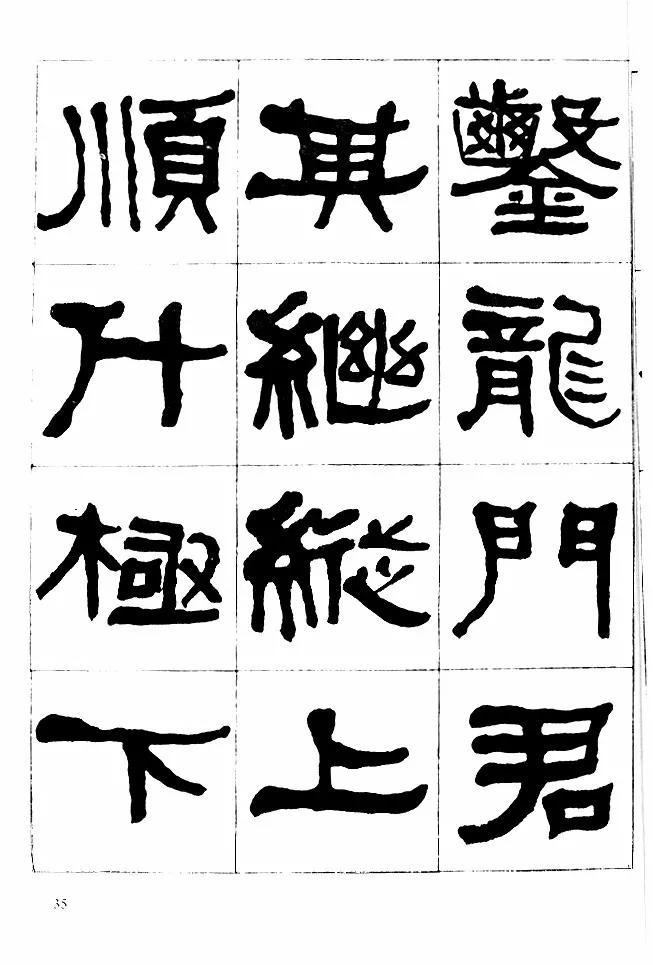 鑿龍門君
其繼縱上
順斗極下
35